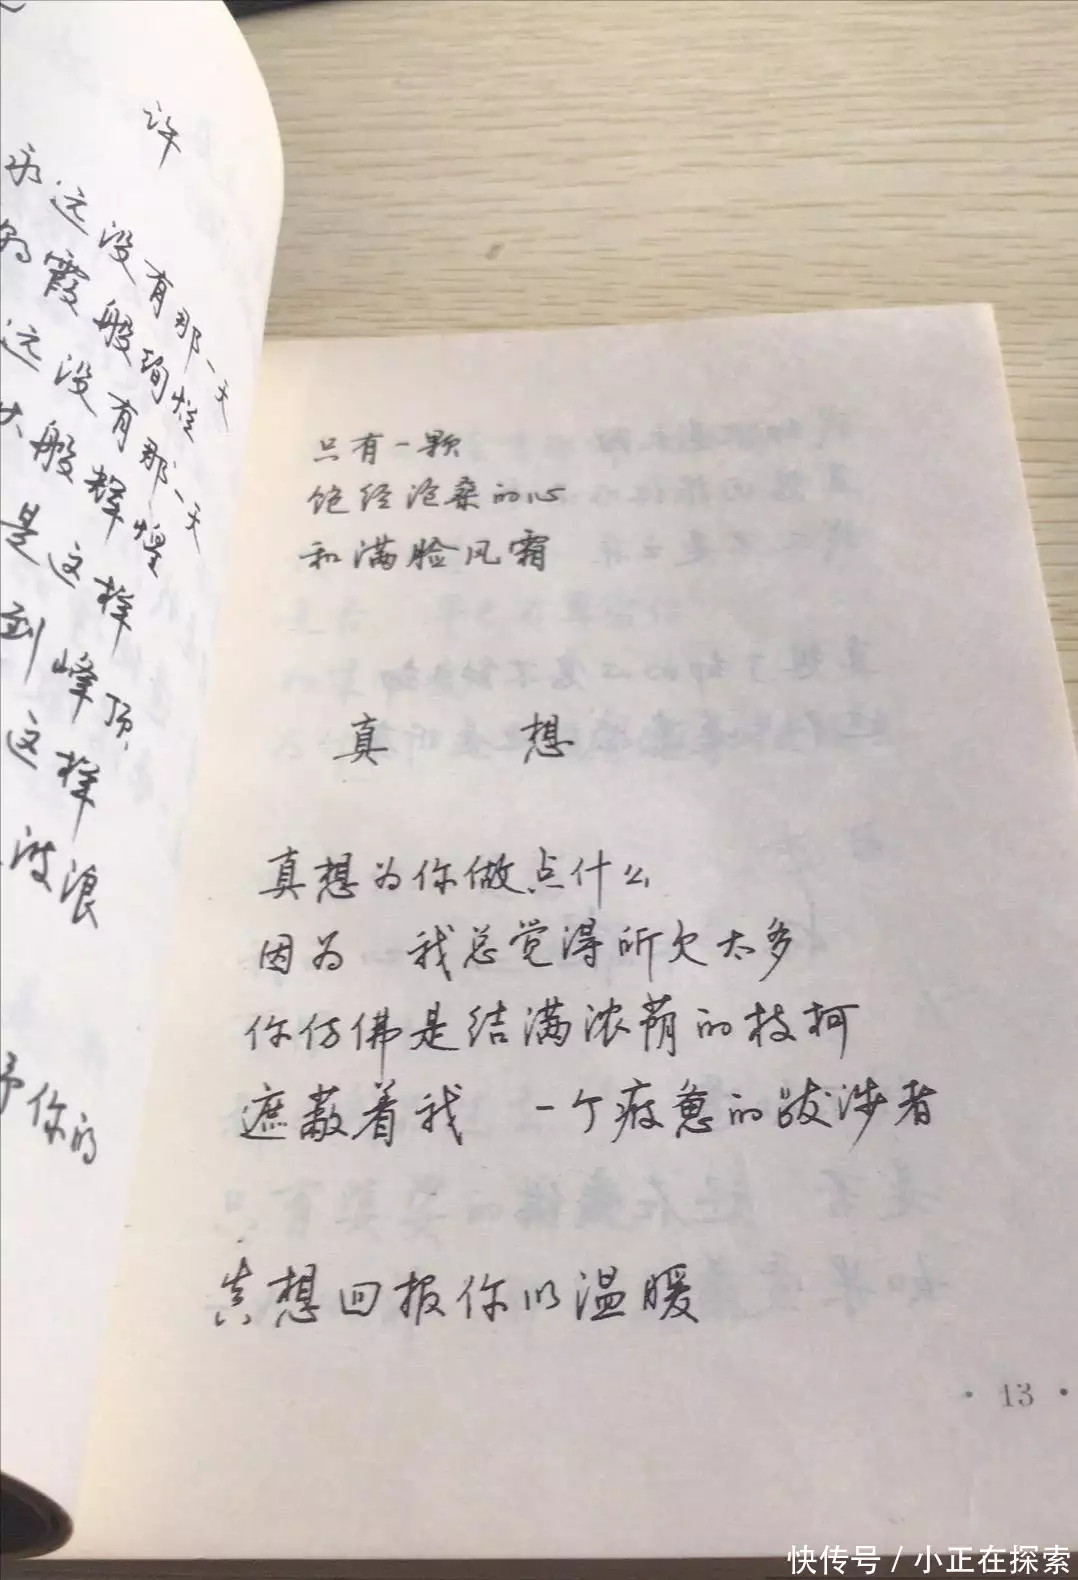 许
永远没有那一天
的霞般绚烂
远没有那一天
般辉煌
是这样
到峰顶
这样
波浪
予你的
只有一颗
饱经沧桑的心
和满脸风霜
真 想
真想为你做点什么
因为 我总觉得所欠太多
你仿佛是结满浓荫的枝柯
遮蔽着我 一个疲惫的跋涉者
真想回报你以温暖
· 13 ·
快传号 / 小正在探索